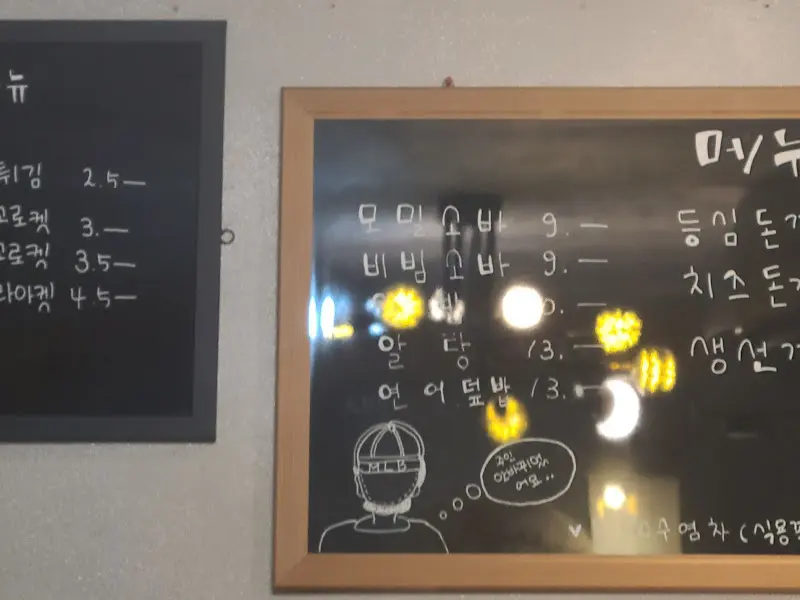 뉴
튀김 2.5—
고로켓 3.—
고로켓 3.5—
4.5—
메뉴
모밀소바 9.—
비빔소바 9.—
알탕 13.—
연어덮밥 13.—
등심돈
치즈돈
생선
MLB
주인
안바뀌었
어요..
염차(식용